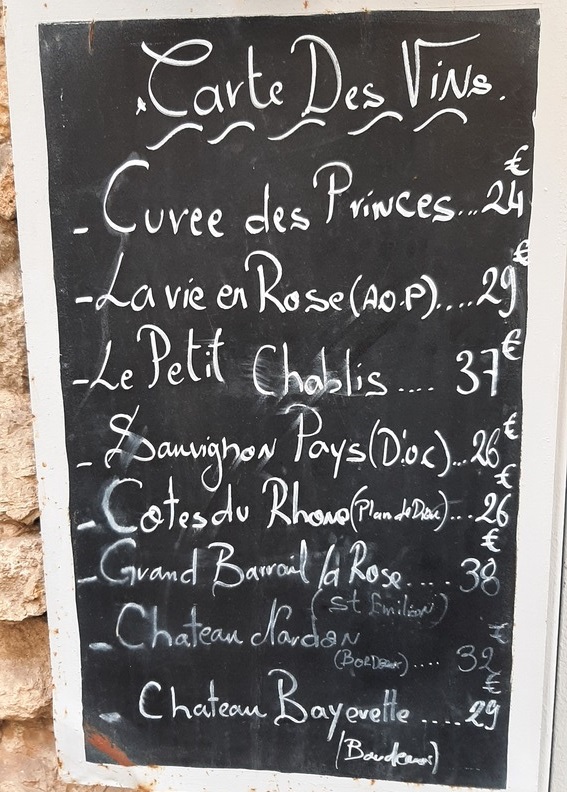 Carte Des Vins.
- Cuvee des Princes... 24 €
- La vie en Rose (A.O.P).... 29 €
- Le Petit Chablis .... 37 €
- Sauvignon Pays (D'oc)... 26 €
- Cotes du Rhone (Plan de Dieu)... 26 €
- Grand Barrail la Rose..... 38 €
(St Emilion)
- Chateau Nardon
(Bordeaux) .... 32 €
- Chateau Bayevette ..... 29 €
(Bordeaux)